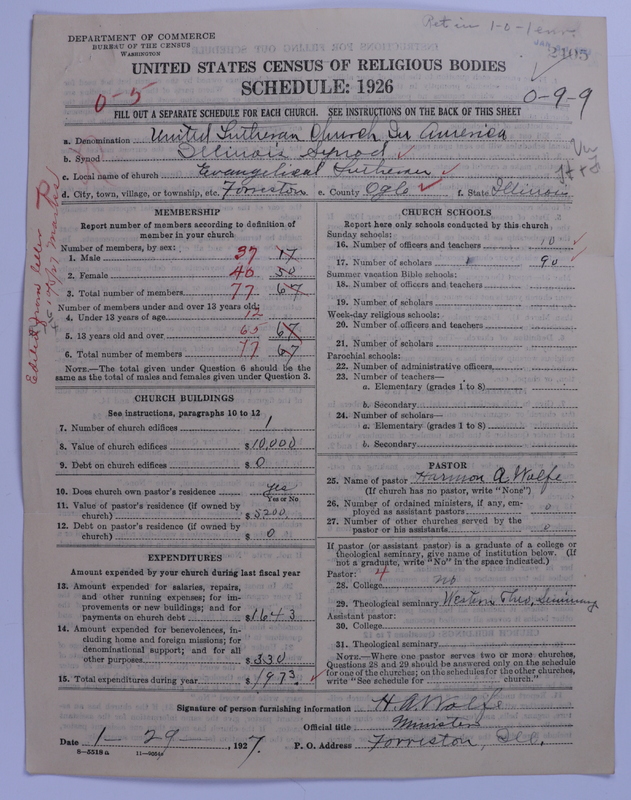 DEPARTMENT OF COMMERCE
BUREAU OF THE CENSUS
WASHINGTON
UNITED STATES CENSUS OF RELIGIOUS BODIES
SCHEDULE: 1926
0-5
0-9-9
FILL OUT A SEPARATE SCHEDULE FOR EACH CHURCH. SEE INSTRUCTIONS ON THE BACK OF THIS SHEET
a. Denomination United Lutheran Church In America
b. Synod Illinois Synod
c. Local name of church Evangelical Lutheran
d. City, town, village, or township, etc. Forreston e. County Ogle f. State Illinois
MEMBERSHIP
Report number of members according to definition of
member in your church
Number of members, by sex:
1. Male 37 17
2. Female 40 50
3. Total number of members 77 67
Number of members under and over 13 years old:
4. Under 13 years of age 12
5. 13 years old and over 65 67
6. Total number of members 77 67
NOTE.—The total given under Question 6 should be the
same as the total of males and females given under Question 3.
CHURCH BUILDINGS
See instructions, paragraphs 10 to 12
7. Number of church edifices 1
8. Value of church edifices $10,000
9. Debt on church edifices $0
10. Does church own pastor's residence yes
Yes or No
11. Value of pastor's residence (if owned by
church) $5200
12. Debt on pastor's residence (if owned by
church) $0
EXPENDITURES
Amount expended by your church during last fiscal year
13. Amount expended for salaries, repairs,
and other running expenses; for im-
provements or new buildings; and for
payments on church debt $1643
14. Amount expended for benevolences, in-
cluding home and foreign missions; for
denominational support; and for all
other purposes $330
15. Total expenditures during year $1973
CHURCH SCHOOLS
Report here only schools conducted by this church
Sunday schools:
16. Number of officers and teachers 10
17. Number of scholars 90
Summer vacation Bible schools:
18. Number of officers and teachers
19. Number of scholars
Week-day religious schools:
20. Number of officers and teachers
21. Number of scholars
Parochial schools:
22. Number of administrative officers
23. Number of teachers—
a. Elementary (grades 1 to 8)
b. Secondary
24. Number of scholars—
a. Elementary (grades 1 to 8)
b. Secondary
PASTOR
25. Name of pastor Harmon A. Wolfe
(If church has no pastor, write "None")
26. Number of ordained ministers, if any, em-
ployed as assistant pastors 0
27. Number of other churches served by the
pastor or his assistants 0
If pastor (or assistant pastor) is a graduate of a college or
theological seminary, give name of institution below. (If
not a graduate, write "No" in the space indicated.)
Pastor: 4
28. College no
29. Theological seminary Western Theo. Seminary
Assistant pastor:
30. College
31. Theological seminary
NOTE.—Where one pastor serves two or more churches,
Questions 28 and 29 should be answered only on the schedule
for one of the churches; on the schedules for the other churches,
write "See schedule for church."
Signature of person furnishing information H. A. Wolfe
Official title Minister
Date 1-29-, 1927. P. O. Address Forreston, Ill.
8-5518a